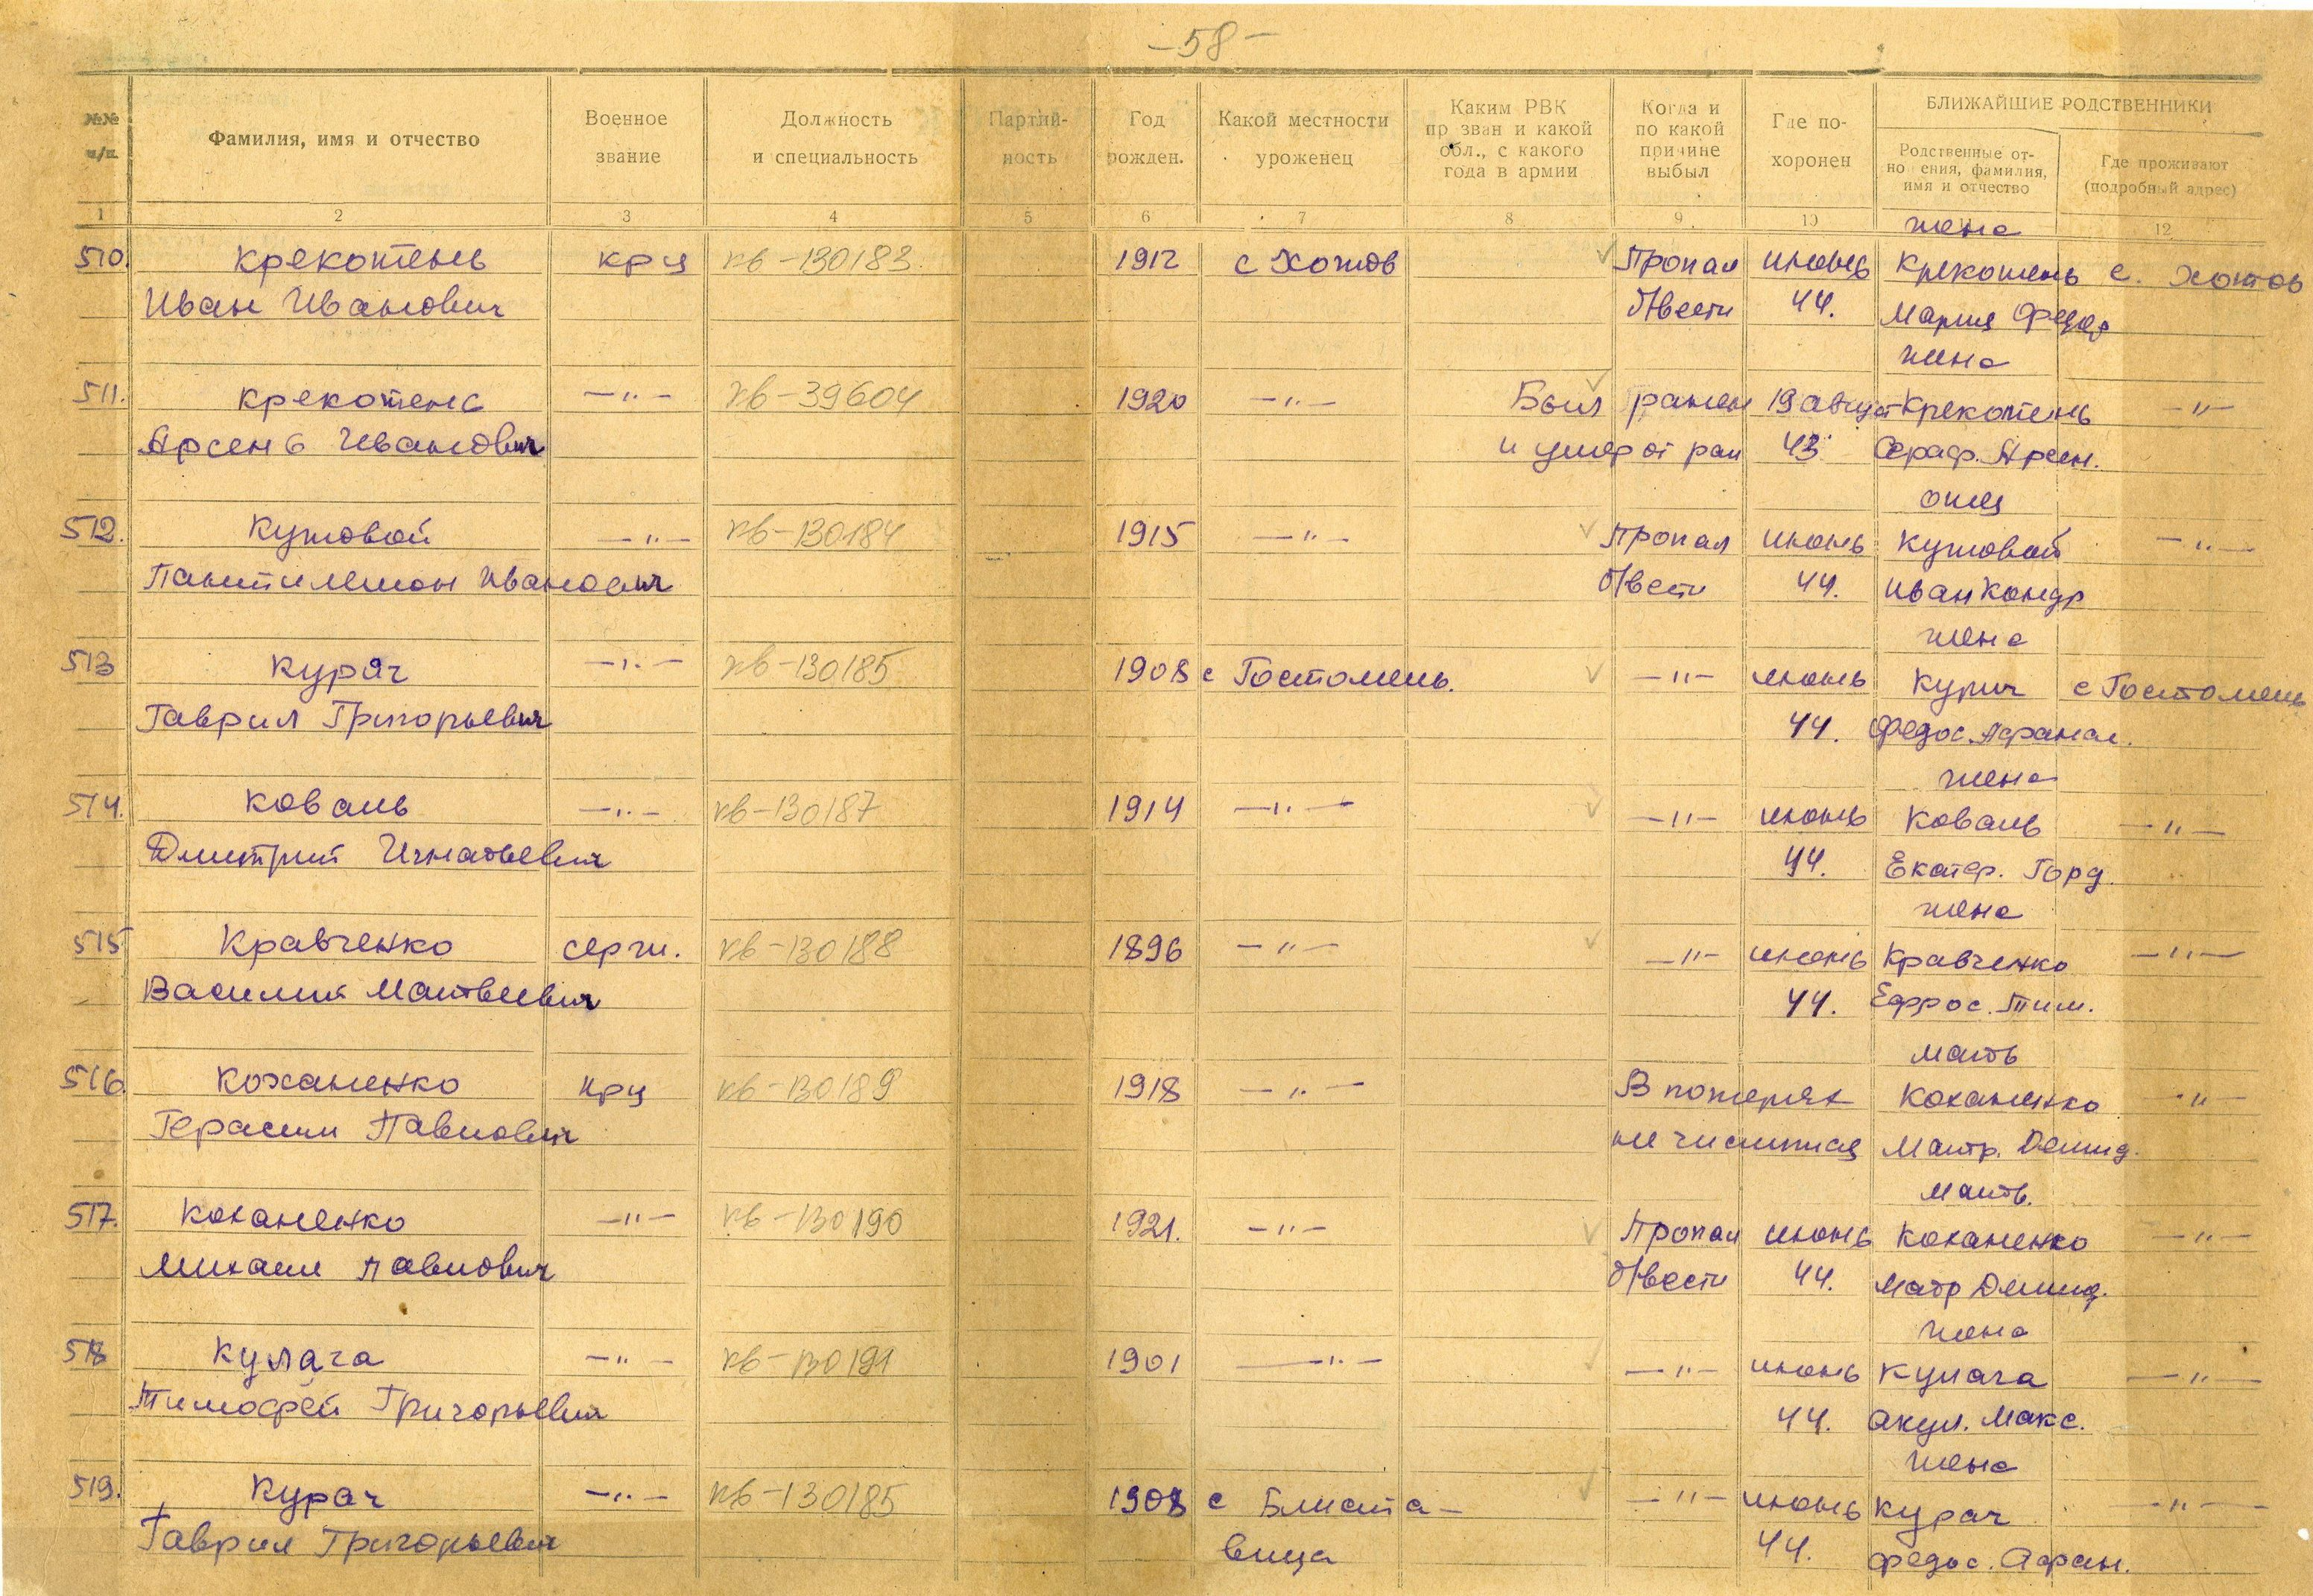 — 58 —
№№ п/п. Фамилия, имя и отчество Военное звание Должность и специальность Партий- ность Год рожден. Какой местности уроженец Каким РВК пр зван и какой обл., с какого года в армии Когда и по какой причине выбыл Где по- хоронен БЛИЖАЙШИЕ РОДСТВЕННИКИ
Родственные от- но ения, фамилия, имя и отчество Где проживают (подробный адрес)
1 2 3 4 5 6 7 8 9 10 12
жена
510. Крекотень крц кв-130183 1912 с Хотов Пропал июнь Крекотень с. Хотов
Иван Иванович б/вести 44. Мария Федор
жена
511. Крекотень —"— кв-39604 1920 —"— Был ранен 19 август Крекотень —"—
Арсень Иванович и умер от ран 43 Сераф. Арсен.
отец
512. Кутовой —"— кв-130184 1915 —"— Пропал июнь Кутовой —"—
Пантилемон Иванович б/вести 44. Иван Кондр
жена
513 Курач —"— кв-130185 1908 с Гостомель. —"— июнь Курич с Гостомель
Гаврил Григорьевич 44. Федос. Афанас.
жена
514. Коваль —"— кв-130187 1914 —"— —"— июнь Коваль —"—
Дмитрий Игнатьевич 44. Екатер. Горд.
жена
515 Кравченко серж. кв-130188 1896 —"— —"— июнь Кравченко —"—
Василий Матвеевич 44. Ефрос. Тим.
мать
516. Коханенко крц кв-130189 1918 —"— В потерях Коханенко —"—
Герасим Павлович не числится Матр. Демид.
мать.
517. Коханенко —"— кв-130190 1921. —"— Пропал июнь Коханенко —"—
Михаил Павлович б/вести 44. Матр Демид.
жена
518 Кулага —"— кв-130191 1901 —"— —"— июнь Кулага —"—
Тимофей Григорьевич 44. Акул. Макс.
жена
519. Курач —"— кв-130185 1908 с Блиста- —"— июнь Курач —"—
Гаврил Григорьевич вица 44. Федос. Афан.